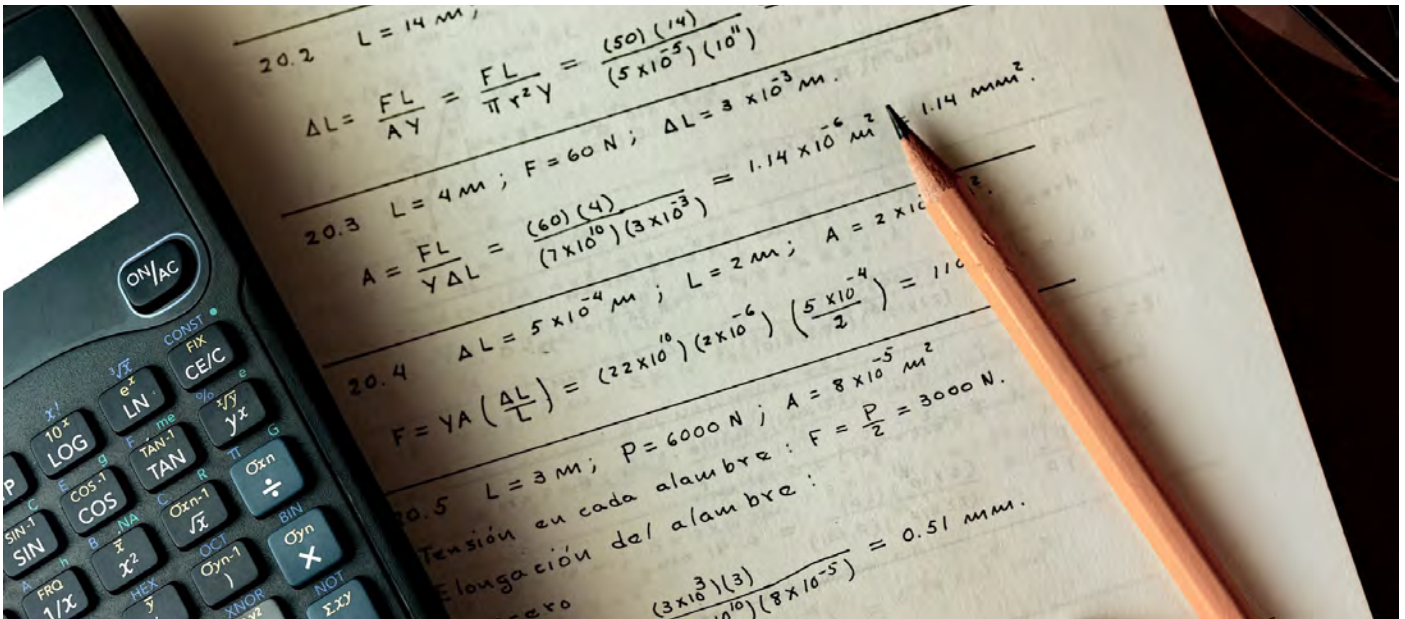 20.2 L = 14 m;
ΔL = FL/AY = FL/πr²Y = (50)(14)/(5x10⁻⁵)(10¹¹) =
20.3 L = 4 m; F = 60 N; ΔL = 3 x10⁻³ m.
A = FL/YΔL = (60)(4)/(7x10¹⁰)(3x10⁻³) = 1.14 x10⁻⁶ m² = 1.14 mm².
20.4 ΔL = 5 x10⁻⁴ m; L = 2 m; A = 2 x10
F = YA (ΔL/L) = (22x10¹⁰)(2x10⁻⁶) (5 x10⁻⁴/2) = 110
20.5 L = 3 m; P = 6000 N; A = 8x10⁻⁵ m²
Tensión en cada alambre: F = P/2 = 3000 N.
Elongación del alambre:
(3x10³)(3)/(8x10⁻⁵) = 0.51 mm.
ON/AC
CONST
FIX
CE/C
³√x
eˣ
LN
% e
ˣ√y
yx
x!
10ˣ
LOG
F , me
TAN-1
TAN
π G
σxn
÷
P
E g
COS-1
COS
C R
σxn-1
√x
C
SIN-1
SIN
B ,NA
x̄
x²
OCT
σyn-1
)
BIN
σyn
×
A h
FRQ
1/x
HEX
ȳ
XNOR
NOT
Σxy